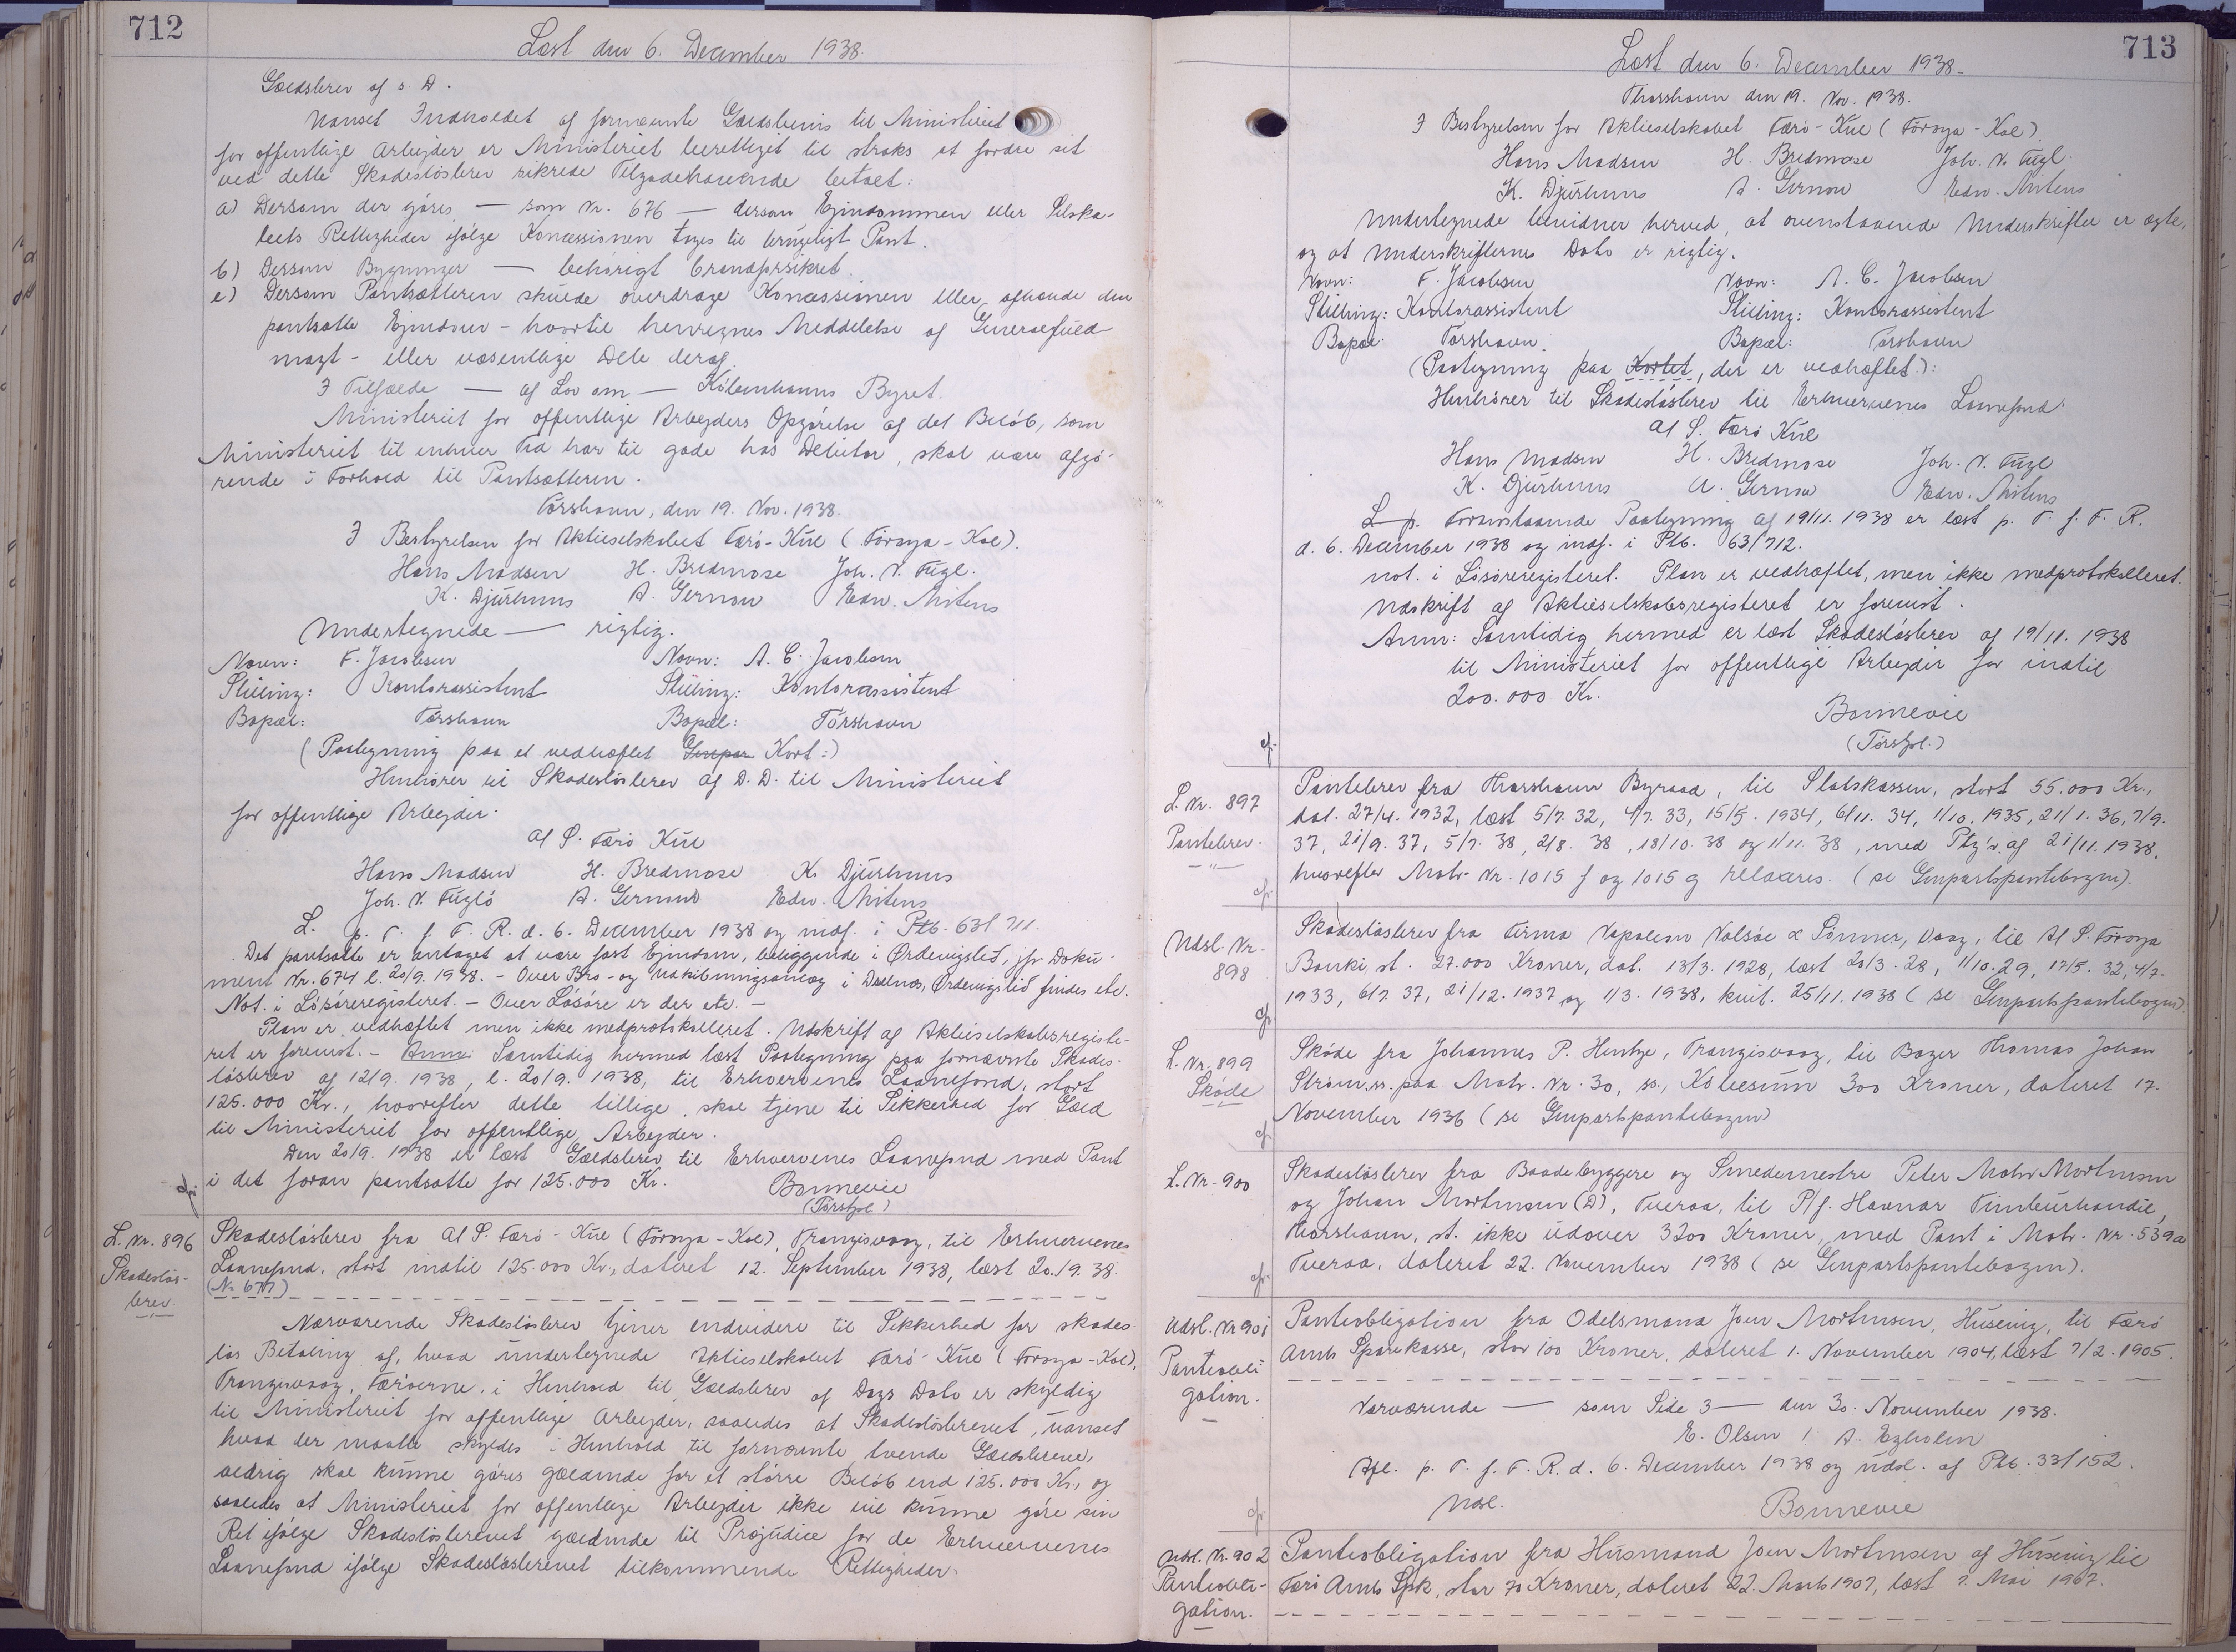 712
Læst den 6. December 1938.
Gældsbrev af s. D.
Uanset Indholdet af fornævnte Gældsbevis til Ministeriet
for offentlige Arbejder er Ministeriet berettiget til straks at fordre sit
ved dette Skadesløsbrev sikrede Tilgodehavende betalt:
a) Dersom der gøres — som Nr. 676 — dersom Ejendommen eller Selska-
bets Rettigheder ifølge Koncessionen tages til brugeligt Pant.
b) Dersom Bygninger — behørigt brandforsikret.
c) Dersom Pantsætteren skulde overdrage Koncessionen eller afhænde den
pantsatte Ejendom - hvortil henregnes Meddelelse af Generalfuld-
magt - eller væsentlige Dele deraf.
I Tilfælde — af Lov om — Københavns Byret.
Ministeriet for offentlige Arbejders Opgørelse af det Beløb, som
Ministeriet til enhver Tid har til gode hos Debitor, skal være afgø-
rende i Forhold til Pantsætteren.
Tórshavn, den 19. Nov. 1938.
I Bestyrelsen for Aktieselskabet Færø-Kul (Föroya-Kol).
Hans Madsen H. Bredmose Joh. V. Fugl.
K. Djurhuus A. Gernow Edw. Mitens
Undertegnede — rigtig.
Navn: F. Jacobsen Navn: A. C. Jacobsen
Stilling: Kontorassistent Stilling: Kontorassistent
Bopæl: Tórshavn Bopæl: Tórshavn
(Paategning paa et vedhæftet Genpar Kort:)
Henhører til Skadesløsbrev af D.D. til Ministeriet
for offentlige Arbejder.
A/S. Færø Kul
Hans Madsen H. Bredmose K. Djurhuus
Joh. V. Fuglö A. Gernow Edw. Mitens
L. p. T. f. F. R. d. 6. December 1938 og indf. i Ptb. 63/711.
Det pantsatte er antaget at være fast Ejendom, beliggende i Ørdevigslid, jfr. Doku-
ment Nr. 674 l. 20/9. 1938. - Over Bro- og Udskibningsanlæg i Ørdevigslid findes etc.
Not. i Løsøreregisteret. - Over Løsøre er der etc. -
Plan er vedhæftet men ikke medprotokolleret. Udskrift af Aktieselskabsregiste-
ret er forevist. - Anm: Samtidig hermed læst Paategning paa fornævnte Skades-
løsbrev af 12/9. 1938, l. 20/9. 1938, til Erhvervenes Laanefond, stort
125.000 Kr., hvorefter dette tillige skal tjene til Sikkerhed for Gæld
til Ministeriet for offentlige Arbejder.
Den 20/9. 1938 er læst Gældsbrev til Erhvervenes Laanefond med Pant
i det foran pantsatte for 125.000 Kr. Bonnevie
cfr. (Tórshol.)
L. Nr. 896
Skadesløs-
brev.
Skadesløsbrev fra A/S. Færø-Kul (Föroya-Kol), Trangisvaag, til Erhvervenes
Laanefond, stort indtil 125.000 Kr., dateret 12. September 1938, læst 20./9. 38.
(Nr 677)
Nærværende Skadesløsbrev tjener endvidere til Sikkerhed for skades-
løs Betaling af, hvad undertegnede Aktieselskabet Færø-Kul (Föroya-Kol),
Trangisvaag, Færøerne, i Henhold til Gældsbrev af Dags Dato er skyldig
til Ministeriet for offentlige Arbejder, saaledes at Skadesløsbrevet, uanset
hvad der maatte skyldes i Henhold til fornævnte tvende Gældsbreve,
aldrig skal kunne gøres gældende for et større Beløb end 125.000 Kr., og
saaledes at Ministeriet for offentlige Arbejder ikke vil kunne gøre sin
Ret ifølge Skadesløsbrevet gældende til Præjudice for de Erhvervenes
Laanefond ifølge Skadesløsbrevet tilkommende Rettigheder.
713
Læst den 6. December 1938.
Thorshavn den 19. Nov. 1938.
I Bestyrelsen for Aktieselskabet Færø-Kul (Föroya-Kol).
Hans Madsen H. Bredmose Joh. V. Fugl.
K. Djurhuus A. Gernow Edw. Mitens
Undertegnede bevidner herved, at ovenstaaende Underskrifter er ægte,
og at Underskrifternes Dato er rigtig.
Navn: F. Jacobsen Navn: A. C. Jacobsen
Stilling: Kontorassistent Stilling: Kontorassistent
Bopæl: Tórshavn. Bopæl: Tórshavn
(Paategning paa Kortet, der er vedhæftet.):
Henhører til Skadesløsbrev til Erhvervenes Laanefond.
A/S. Færø Kul
Hans Madsen H. Bredmose Joh. V. Fugl
K. Djurhuus A. Gernow Edw. Mitens
L p. Foranstaaende Paategning af 19/11. 1938 er læst p. T. f. F. R.
d. 6. December 1938 og indf. i Ptb. 63/712.
not. i Løsøreregisteret. Plan er vedhæftet, men ikke medprotokolleret.
Udskrift af Aktieselskabsregisteret er forevist.
Anm: Samtidig hermed er læst Skadesløsbrev af 19/11. 1938
til Ministeriet for offentlige Arbejder for indtil
200.000 Kr.
Bonnevie
cfr. (Tórshol.)
L. Nr. 897
Pantebrev.
Pantebrev fra Thorshavn Byraad, til Statskassen, stort 55.000 Kr.,
dat. 27/4. 1932, læst 5/7. 32, 4/7. 33, 15/5. 1934, 6/11. 34, 1/10. 1935, 21/1. 36, 7/9.
37, 21/9. 37, 5/7. 38, 2/8. 38, 18/10. 38 og 1/11. 38, med Ptg'n. af 21/11. 1938,
hvorefter Matr. Nr. 1015 f og 1015 g relaxeres. (se Genpartspantebogen).
cfr.
Udsl. Nr.
898
Skadesløsbrev fra Firma Napoleon Nolsöe & Sönner, Vaag, til A/S. Föroya
Banki, st. 27.000 Kroner, dat. 13/3. 1928, læst 20/3. 28, 1/10. 29, 17/5. 32, 4/7.
1933, 6/7. 37, 21/12. 1937 og 1/3. 1938, kvit. 25/11. 1938 (se Genpartspantebogen)
cfr.
L. Nr. 899
Skøde
Skøde fra Johannes P. Hentze, Trangisvaag, til Bager Thomas Johan
Strøm, ss. paa Matr. Nr. 30, ss., Købesum 300 Kroner, dateret 17.
November 1936 (se Genpartspantebogen)
cfr.
L. Nr. 900
Skadesløsbrev fra Baadebyggere og Smedemestre Peter Mohr Mortensen
og Johan Mortensen (D), Tveraa, til P/f. Havnar Timburhandil,
Thorshavn, st. ikke udover 3200 Kroner, med Pant i Matr. Nr. 539a
Tveraa, dateret 22. November 1938 (se Genpartspantebogen).
cfr.
Udsl. Nr 901
Pantobli-
gation.
Panteobligation fra Odelsmand Joen Mortensen, Husevig, til Færø
Amts Sparekasse, stor 100 Kroner, dateret 1. November 1904, læst 7/2. 1905.
Nærværende — som Side 3 — den 30. November 1938.
E. Olsen / A. Egholm
Afl. p. T. f. F. R. d. 6. December 1938 og udsl. af Ptb. 33/152.
Udsl. Bonnevie
cfr.
Udsl. Nr. 902
Panteobli-
gation.
Panteobligation fra Husmand Joen Mortensen af Husevig til
Færø Amts Spk, stor 70 Kroner, dateret 22. Marts 1907, læst 7. Mai 1907.